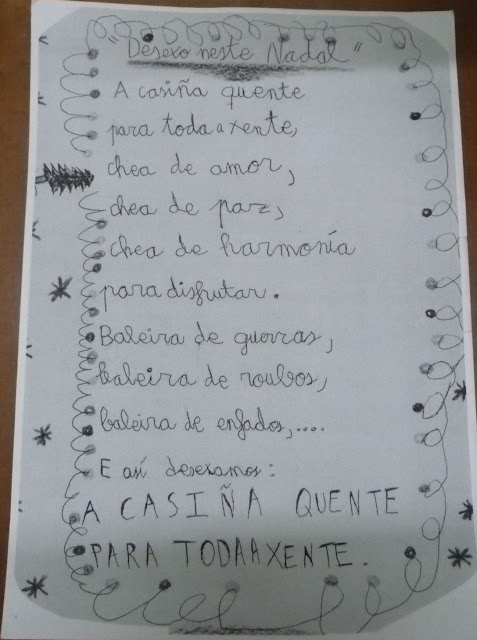 "Desexo neste Nadal"
A casiña quente
para toda a xente,
chea de amor,
chea de paz,
chea de harmonía
para disfrutar.
Baleira de guerras,
baleira de roubos,
baleira de enfados,....
E así desexamos:
A CASIÑA QUENTE
PARA TODA A XENTE.